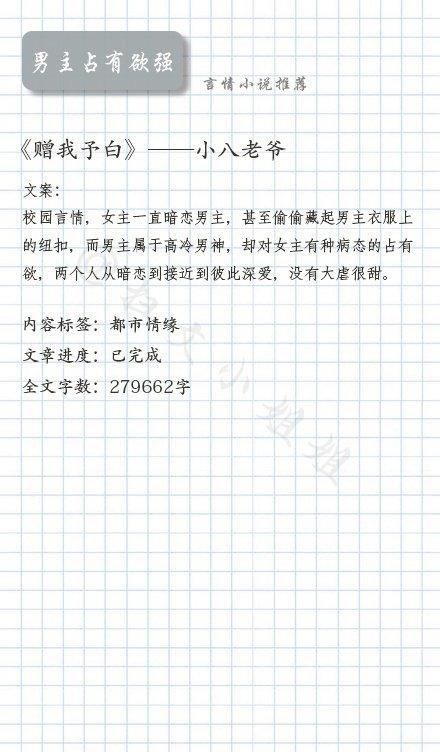 男主占有欲强
言情小说推荐
《赠我予白》——小八老爷
文案：
校园言情，女主一直暗恋男主，甚至偷偷藏起男主衣服上
的纽扣，而男主属于高冷男神，却对女主有种病态的占有
欲，两个人从暗恋到接近到彼此深爱，没有大虐很甜。
内容标签：都市情缘
文章进度：已完成
全文字数：279662字
@扫文小姐姐